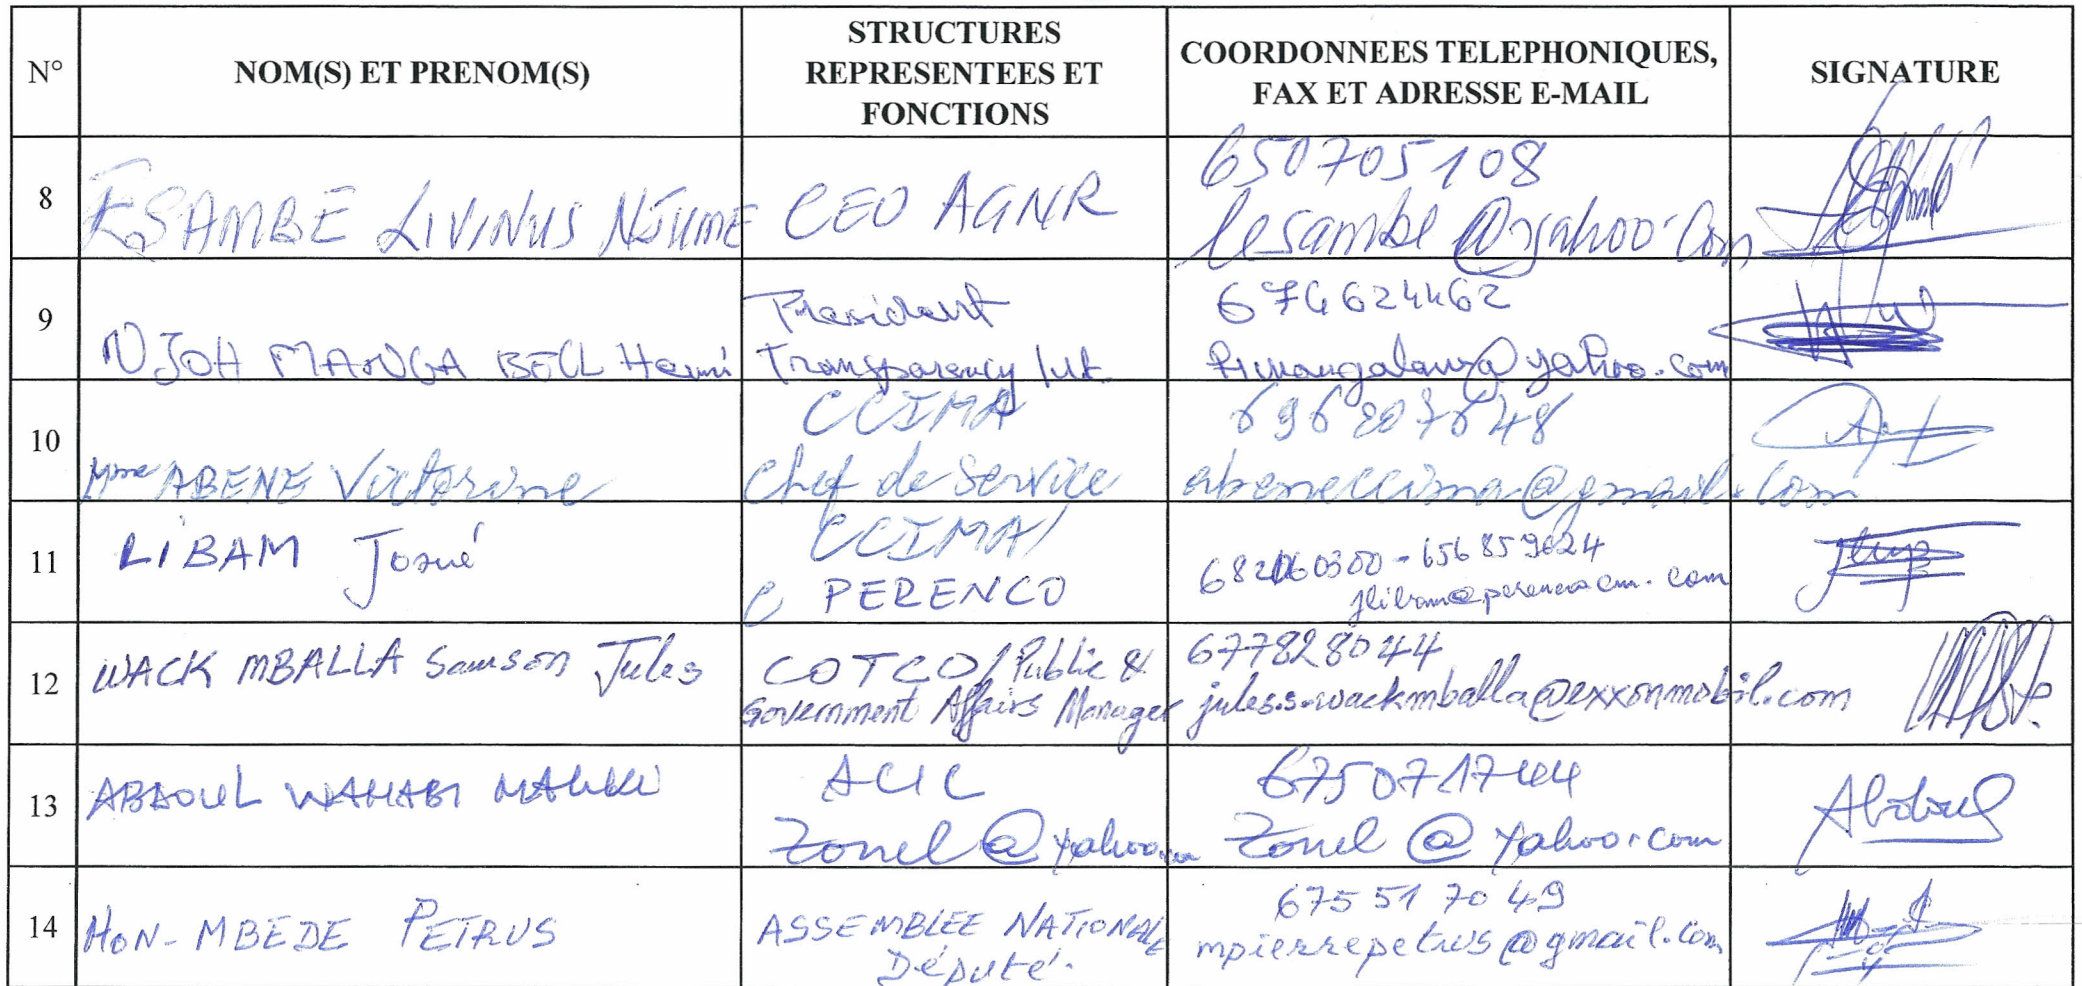 N° NOM(S) ET PRENOM(S) STRUCTURES REPRESENTEES ET FONCTIONS COORDONNEES TELEPHONIQUES, FAX ET ADRESSE E-MAIL SIGNATURE
8 ESAMBE LIVINUS NJUME CEO AGNR 650705108
lesambe@yahoo.com
9 NJOH MANGA BELL Henri President
Transparency Int. 674624462
@yahoo.com
10 Mme ABENE Victorine CCIMA
Chef de Service 696207648
abeneccima@gmail.com
11 LIBAM Josué CCIMA/
PERENCO 656859624
jlibam@perenco.cm.com
12 WACK MBALLA Samson Jules COTCO/Public &
Government Affairs Manager 677828044
jules.s.wackmballa@exxonmobil.com
13 ABDOUL WAHABI ACIC
Zouel@yahoo 675071744
Zouel@yahoo.com
14 HON-MBEDE PETRUS ASSEMBLEE NATIONALE
Député. 675 51 70 49
mpierrepetrus@gmail.com